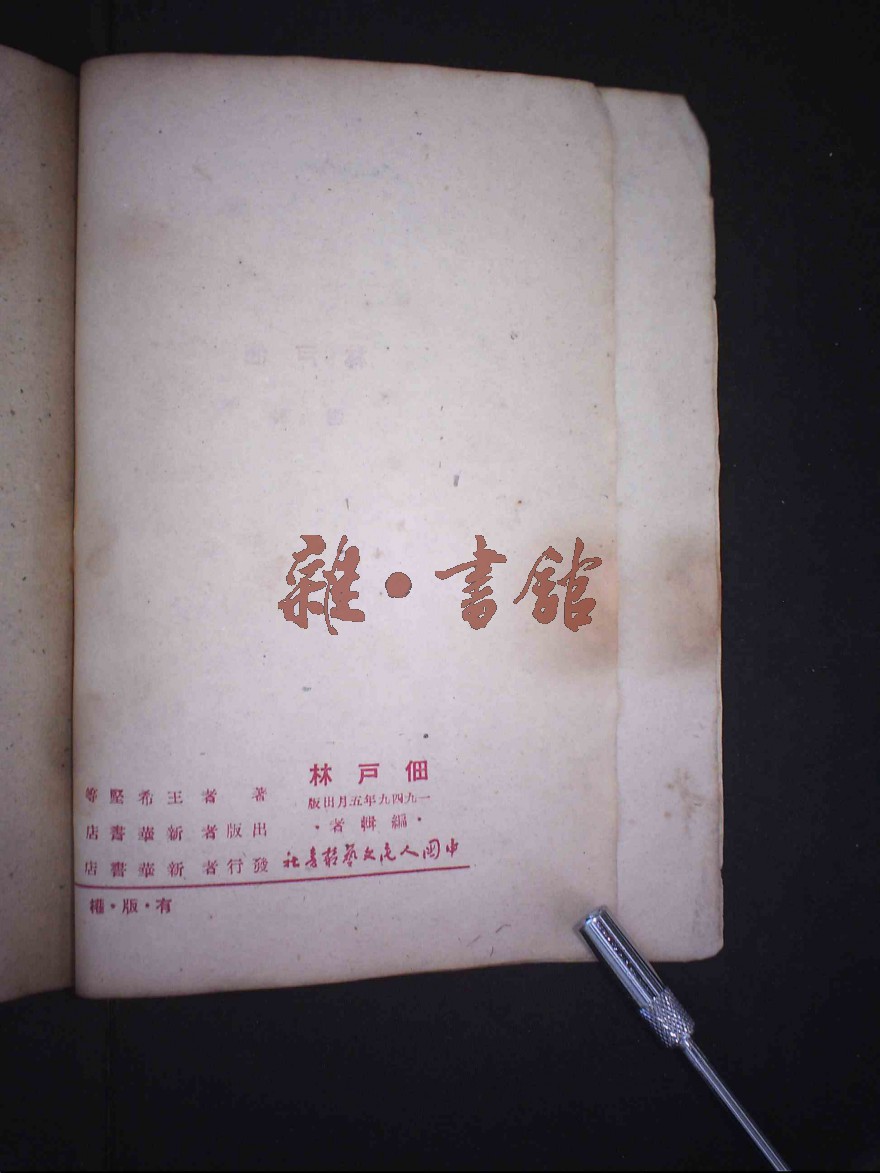 雜•書館
佃戶林
一九四九年五月出版
·編輯者·
中國人民文藝叢書社
著者 王希堅等
出版者 新華書店
發行者 新華書店
有·版·權